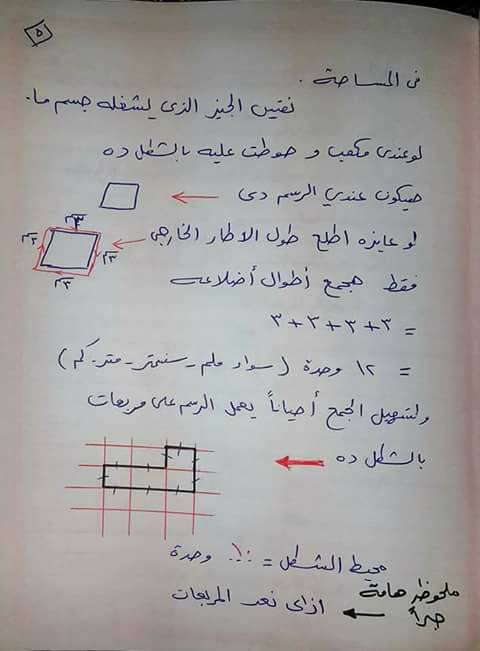 ٥
فى المساحة .
نقيس الحيز الذى يشغله جسم ما .
لو عندى مكعب و حوطت عليه بالشكل ده
هيكون عندي الرسم دى
لو عايزه اطلع طول الاطار الخارجى
٣سم ٣سم ٣سم ٣سم
فقط هجمع أطوال أضلاعه
= ٣+٣+٣+٣
= ١٢ وحدة ( سواء ملم - سنتمتر - متر - كم )
ولتسهيل الجمع أحياناً يعمل الرسم على مربعات
بالشكل ده
محيط الشكل = ١٠ وحدة
ملحوظة هامة
جداً
ازاى نعد المربعات